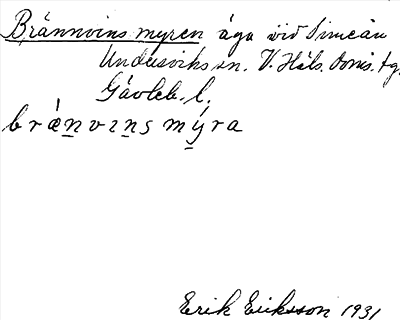 Brännvinsmyren äga vid Simeån
Undersviks sn. V. Häls. doms. tg.
Gävleb. l.
brǽnvɪns mýra
Erik Eriksson 1931